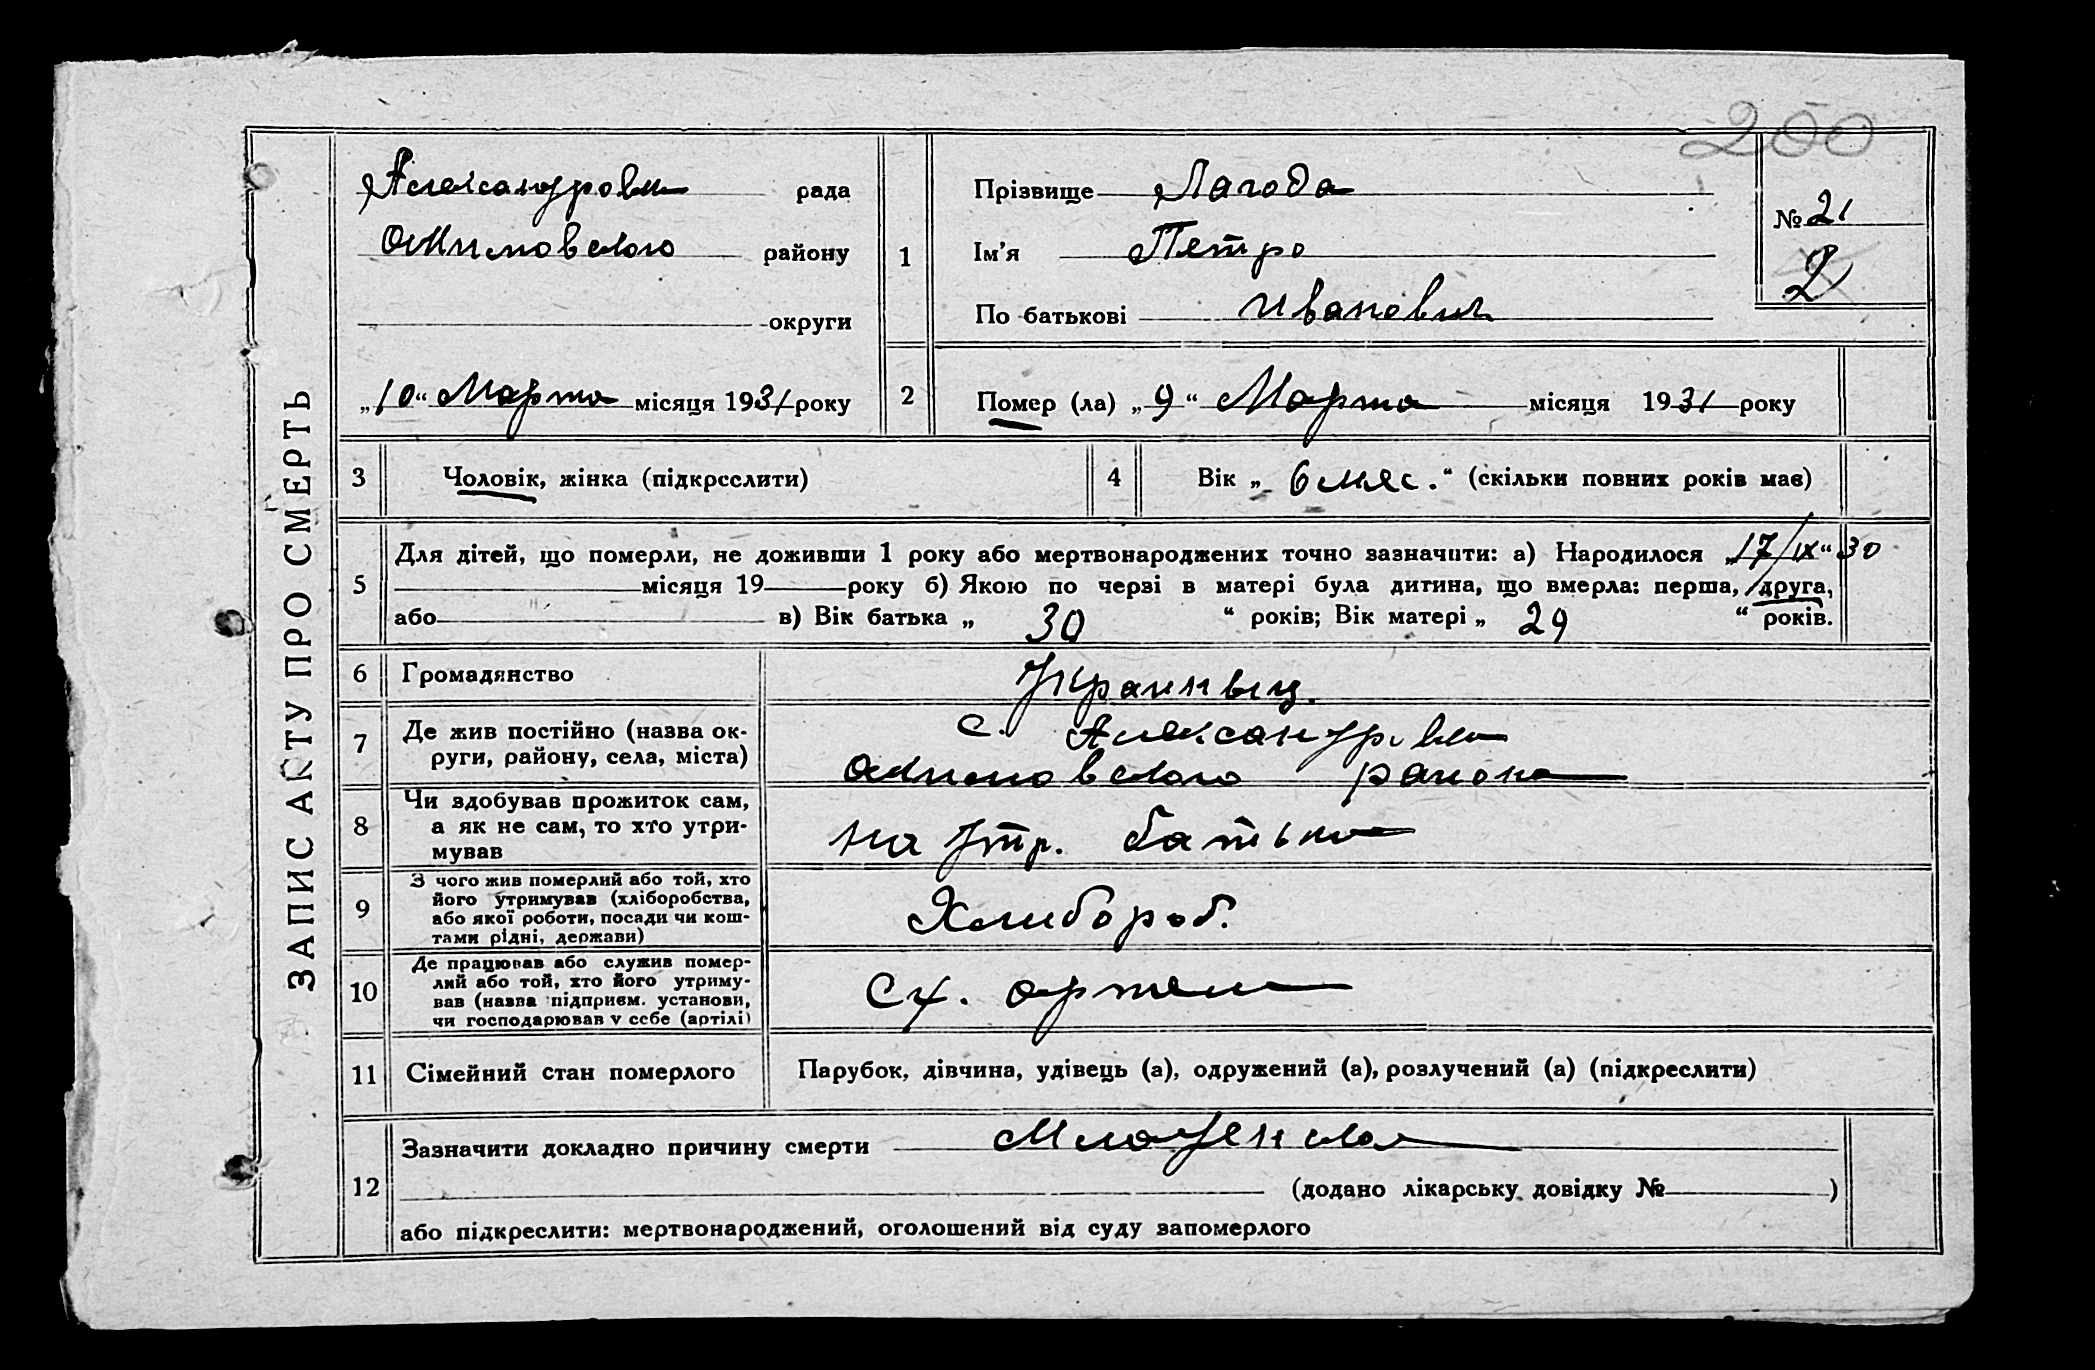 200
ЗАПИС АКТУ ПРО СМЕРТЬ
Александровк рада
Акимовского району
округи
„10“ Марта місяця 1931 року
1
Прізвище Лагода
Ім’я Петро
По батькові Иванович
№ 21
2
2 Помер (ла) „9“ Марта місяця 1931 року
3 Чоловік, жінка (підкреслити)
4 Вік „6 мяс.“ (скільки повних років має)
5 Для дітей, що померли, не доживши 1 року або мертвонароджених точно зазначити: а) Народилося „17/IX“ 30
місяця 19 року б) Якою по черзі в матері була дитина, що вмерла: перша, друга,
або в) Вік батька „ 30 “ років; Вік матері „ 29 “ років.
6 Громадянство Украиныц.
7 Де жив постійно (назва ок-
руги, району, села, міста)
с. Александровка
Акимовского раиона
8 Чи здобував прожиток сам,
а як не сам, то хто утри-
мував
на утр. батька
9 З чого жив померлий або той, хто
його утримував (хліборобства,
або якої роботи, посади чи кош-
тами рідні, держави)
Хлибороб.
10 Де працював або служив помер-
лий або той, хто його утриму-
вав (назва підприєм. установи,
чи господарював у себе (артілі)
Сх. артели
11 Сімейний стан померлого Парубок, дівчина, удівець (а), одружений (а), розлучений (а) (підкреслити)
12 Зазначити докладно причину смерти Младенская
(додано лікарську довідку № )
або підкреслити: мертвонароджений, оголошений від суду запомерлого